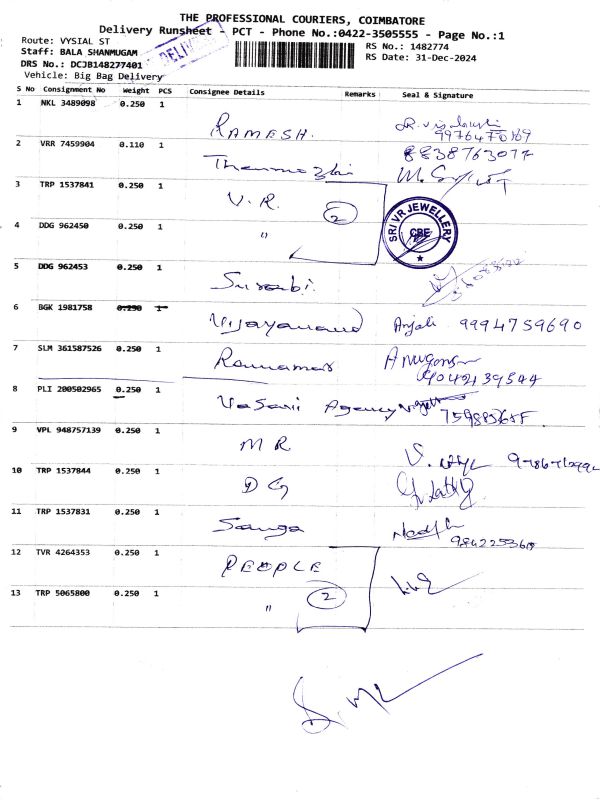 THE PROFESSIONAL COURIERS, COIMBATORE
Delivery Runsheet - PCT - Phone No.:0422-3505555 - Page No.:1
Route: VYSIAL ST
RS No.: 1482774
Staff: BALA SHANMUGAM
RS Date: 31-Dec-2024
DRS No.: DCJB148277401
Vehicle: Big Bag Delivery
DELIVERY
S No Consignment No Weight PCS Consignee Details Remarks Seal & Signature
1 NKL 3489098 0.250 1
RAMESH.
9976470169
2 VRR 7459904 0.110 1
8838763077
3 TRP 1537841 0.250 1
V. R. 2
SRI VR JEWELLERY
CBE
4 DDG 962450 0.250 1
"
5 DDG 962453 0.250 1
6 BGK 1981758 0.250 1
Vijayanand Anjali 9994759690
7 SLM 361587526 0.250 1
9042139544
8 PLI 200502965 0.250 1
Agency
9 VPL 948757139 0.250 1
M R
10 TRP 1537844 0.250 1
D G
11 TRP 1537831 0.250 1
Sanga
12 TVR 4264353 0.250 1
PEOPLE
13 TRP 5065800 0.250 1
" 2